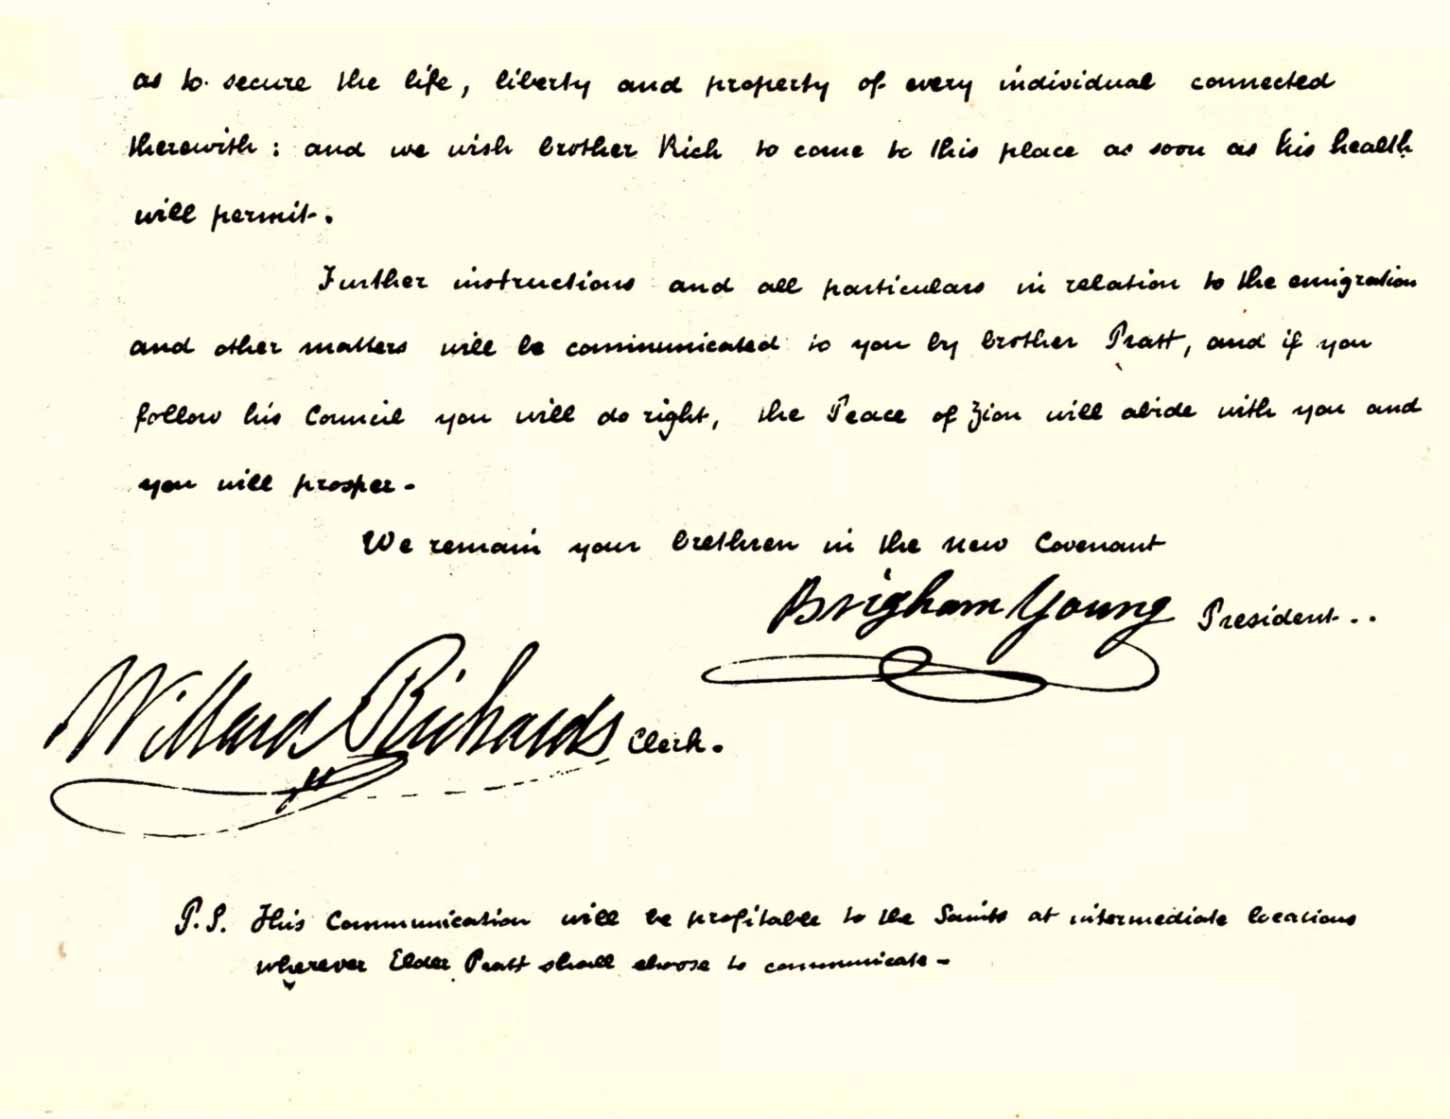 as to secure the life, liberty and property of every individual connected
therewith: and we wish brother Rich to come to this place as soon as his health
will permit.
Further instructions and all particulars in relation to the emigration
and other matters will be communicated to you by brother Pratt, and if you
follow his Council you will do right, the Peace of Zion will abide with you and
you will prosper-
We remain your brethren in the new Covenant
Brigham Young President..
Willard Richards Clerk.
P.S. This Communication will be profitable to the Saints at intermediate locations
wherever Elder Pratt shall choose to communicate-